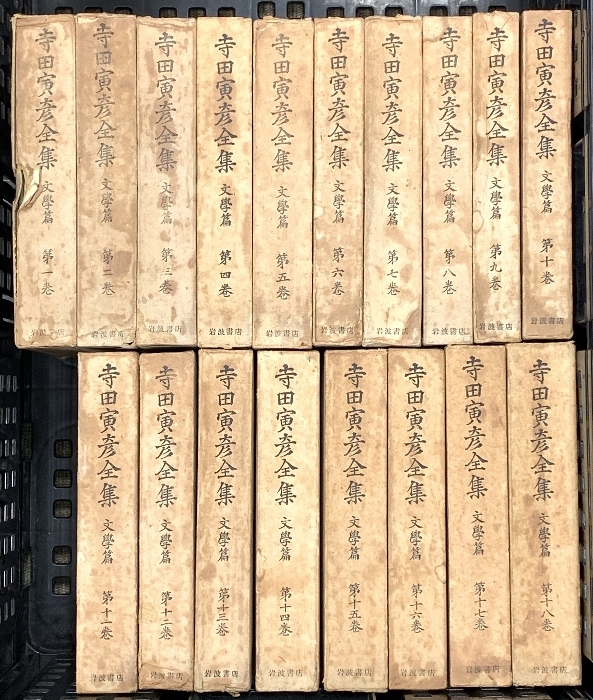 寺田寅彦全集 文學篇 第一巻 岩波書店
寺田寅彦全集 文學篇 第二巻 岩波書店
寺田寅彦全集 文學篇 第三巻 岩波書店
寺田寅彦全集 文學篇 第四巻 岩波書店
寺田寅彦全集 文學篇 第五巻 岩波書店
寺田寅彦全集 文學篇 第六巻 岩波書店
寺田寅彦全集 文學篇 第七巻 岩波書店
寺田寅彦全集 文學篇 第八巻 岩波書店
寺田寅彦全集 文學篇 第九巻 岩波書店
寺田寅彦全集 文學篇 第十巻 岩波書店
寺田寅彦全集 文學篇 第十一巻 岩波書店
寺田寅彦全集 文學篇 第十二巻 岩波書店
寺田寅彦全集 文學篇 第十三巻 岩波書店
寺田寅彦全集 文學篇 第十四巻 岩波書店
寺田寅彦全集 文學篇 第十五巻 岩波書店
寺田寅彦全集 文學篇 第十六巻 岩波書店
寺田寅彦全集 文學篇 第十七巻 岩波書店
寺田寅彦全集 文學篇 第十八巻 岩波書店